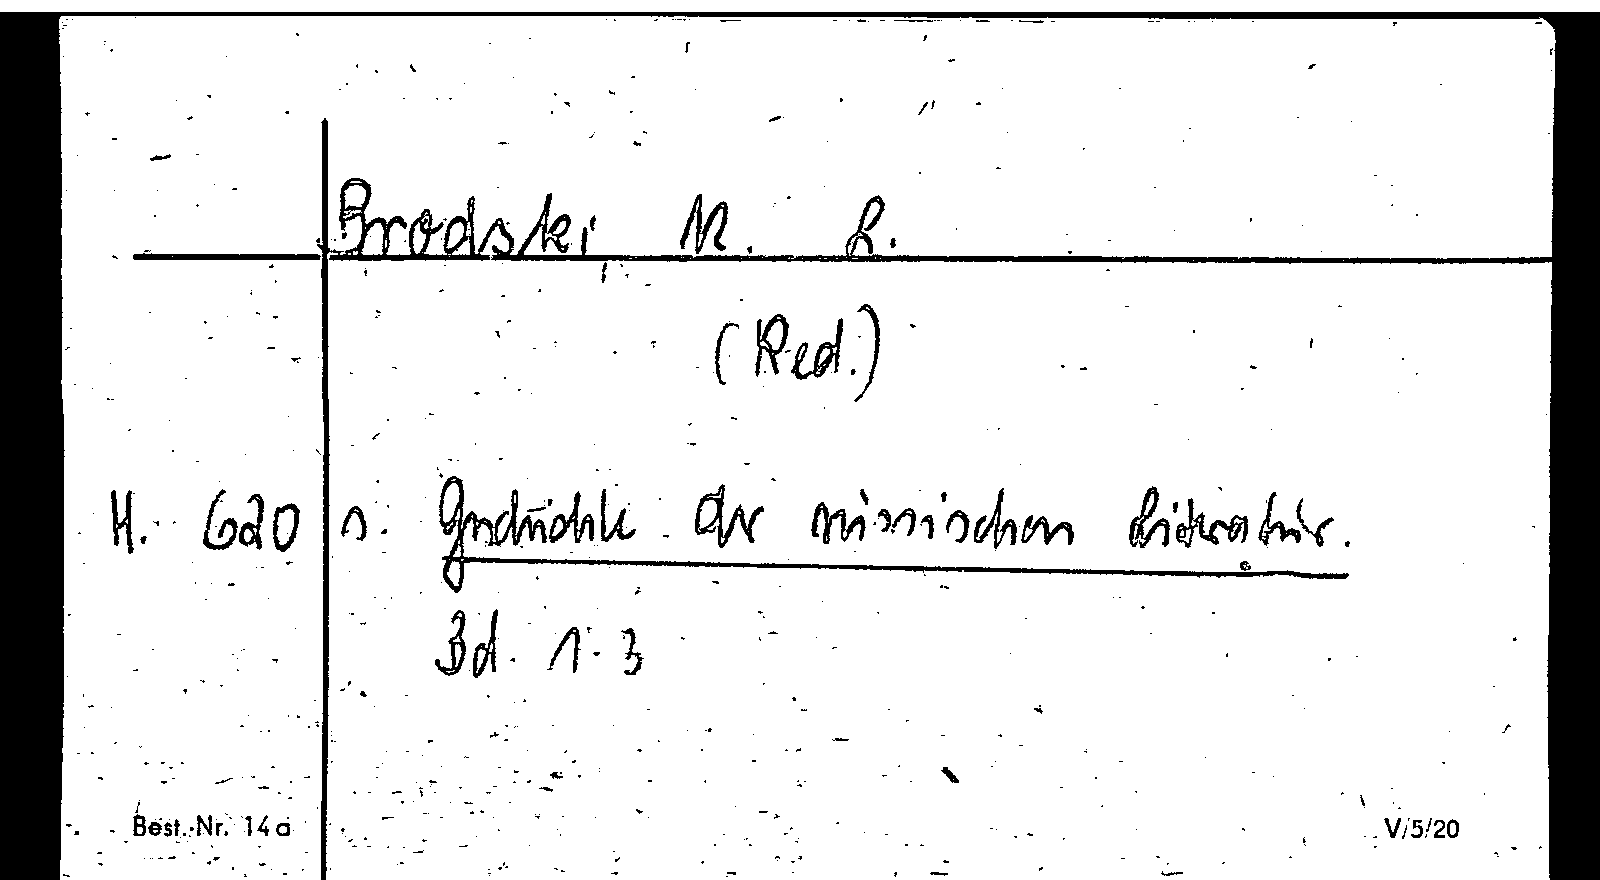 Brodski, N. L.
(Red.)
H. 620 s. Geschichte der russischen Literatur.
Bd. 1-3
Best.-Nr. 14a V/5/20